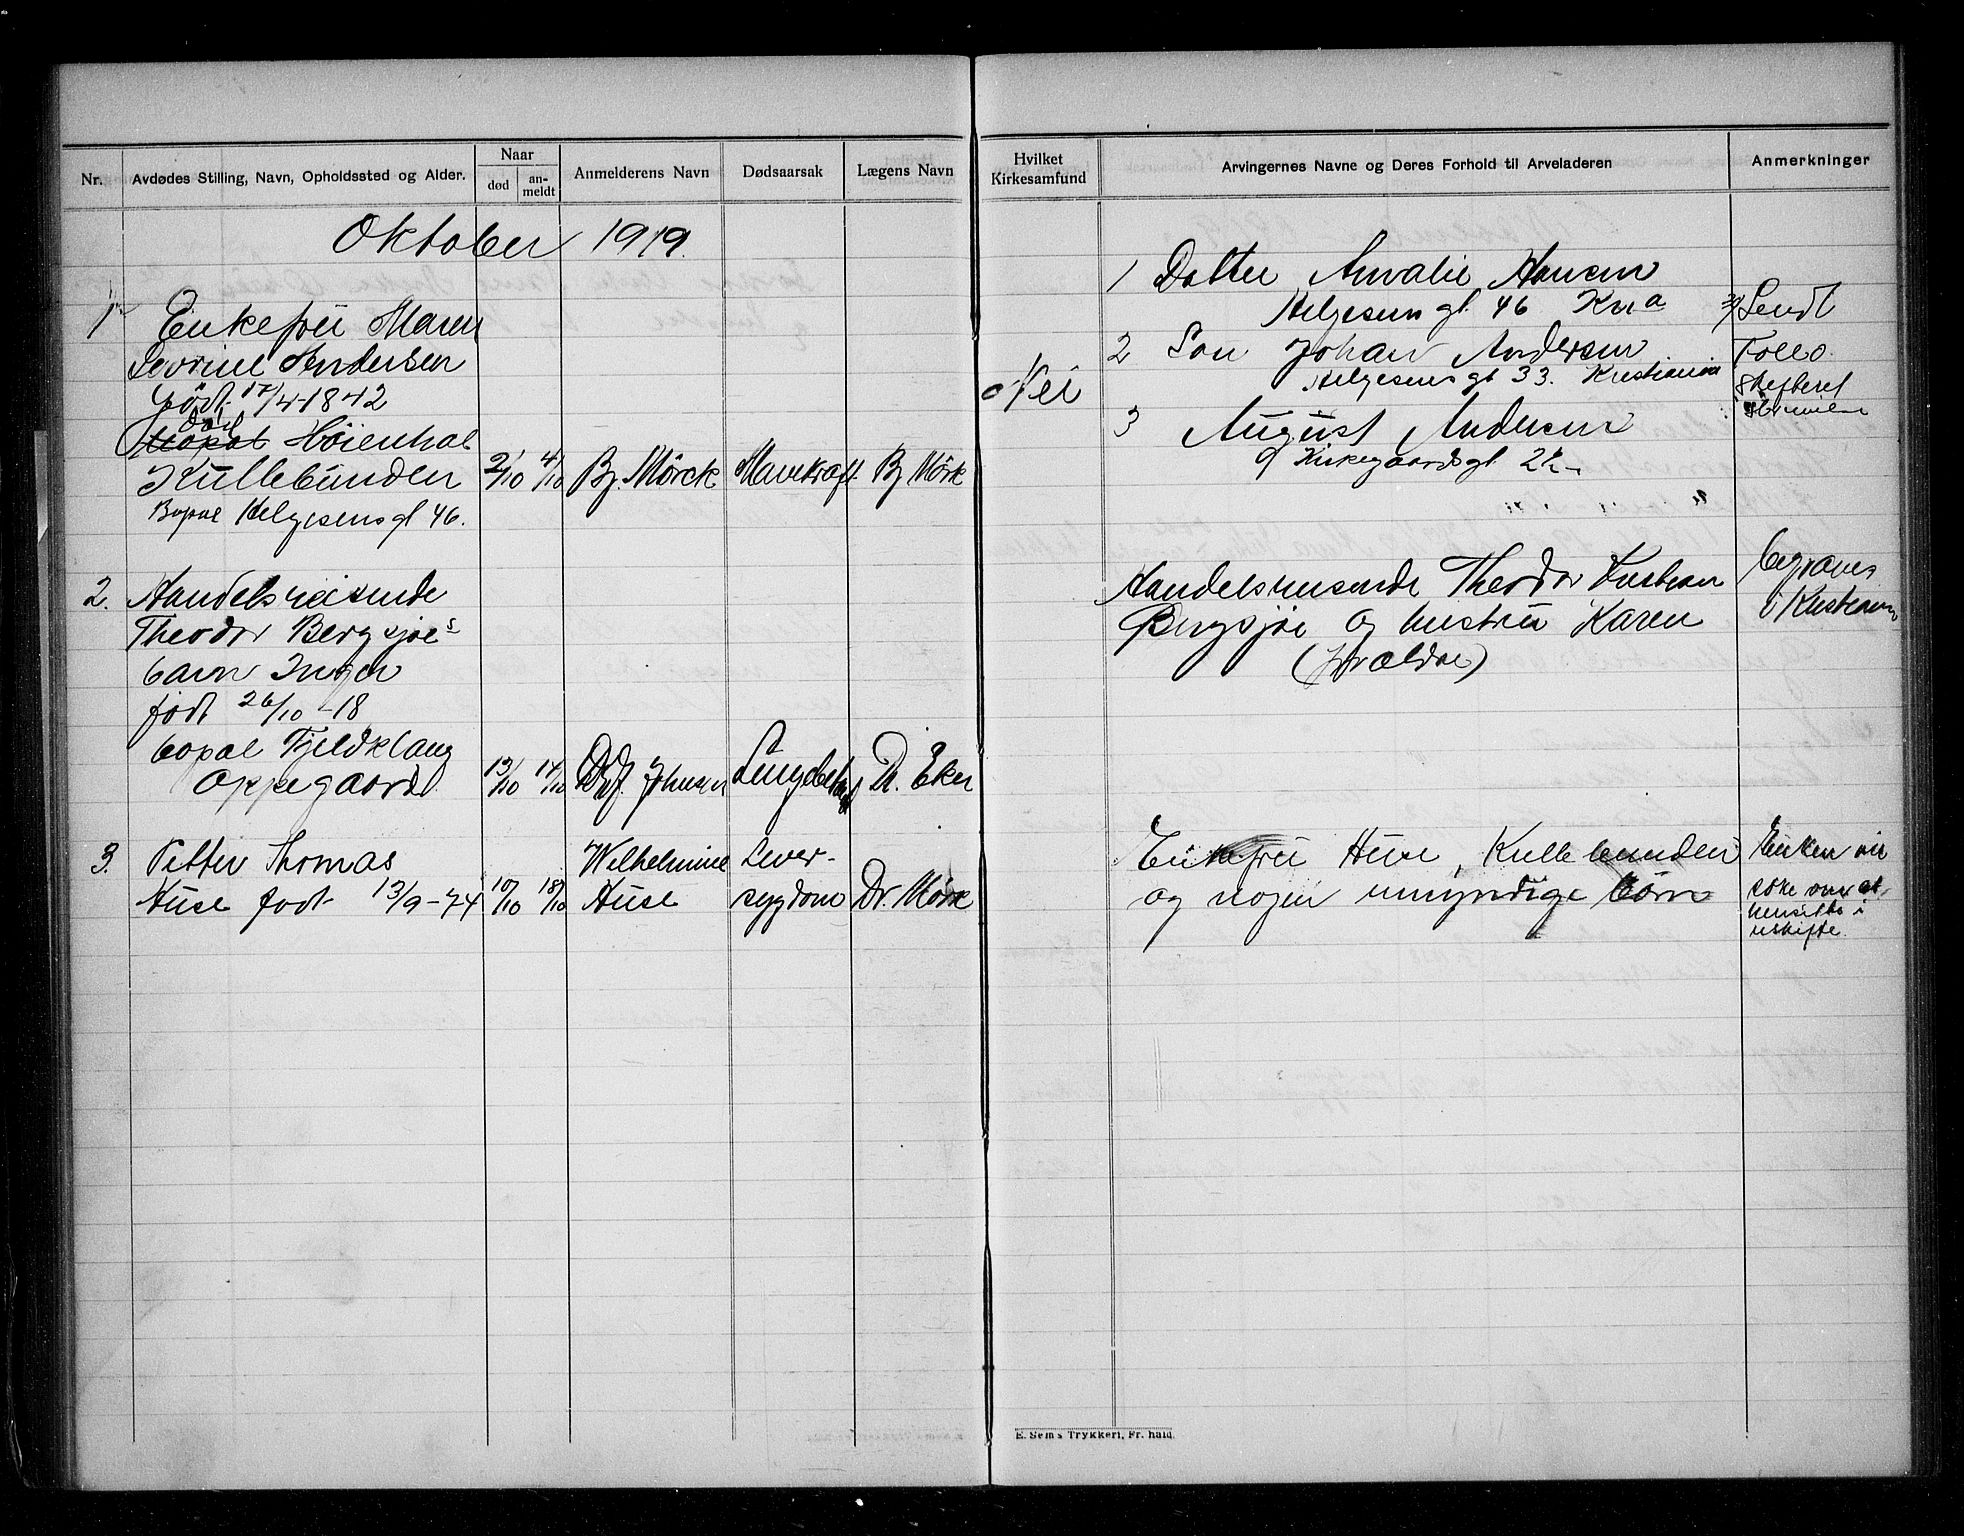 Nr.
Avdødes Stilling, Navn, Opholdssted og Alder.
Naar
død
an-
meldt
Anmelderens Navn
Dødsaarsak
Lægens Navn
Hvilket
Kirkesamfund
Arvingernes Navne og Deres Forhold til Arveladeren
Anmerkninger
Oktober 1919.
1
Enkefru Maren
Severine Andersen
født 17/4-1842
død
Bopæl Høienhal
Kullebunden
Bopæl Helgesensgt 46.
2/10
4/10
Bj. Mørck
Mavekræft
Bj Mörk
Nei
1 Datter Amalie Hansen
Helgesens gt. 46 Kr.a
2 Søn Johan Andersen
Helgesens gt 33. Kristiania
3 August Andersen
Kirkegaardsgt
Sendt
Follo
skifteret
2. Handelsreisende
Theodor Bergsjøes
barn Inger
født 26/10-18
bopæl Fjeldklang
Oppegaard
13/10
14/10
Johnsen
Dr. Eker
Handelsreisende Theodor Kristian
Bergsjøe og hustru Karen
(forældre)
begraves
i Kristiania
3. Petter Thomas
Huse født 13/9-74
10/10
18/10
Wilhelmine
Huse
Lever-
sygdom
Dr. Mörk
Enkefru Huse, Kullebunden
og nogen umyndige børn
Enken vil
søke om at
hensitte i
uskifte.
E. Sem's Trykkeri, Fr. hald.